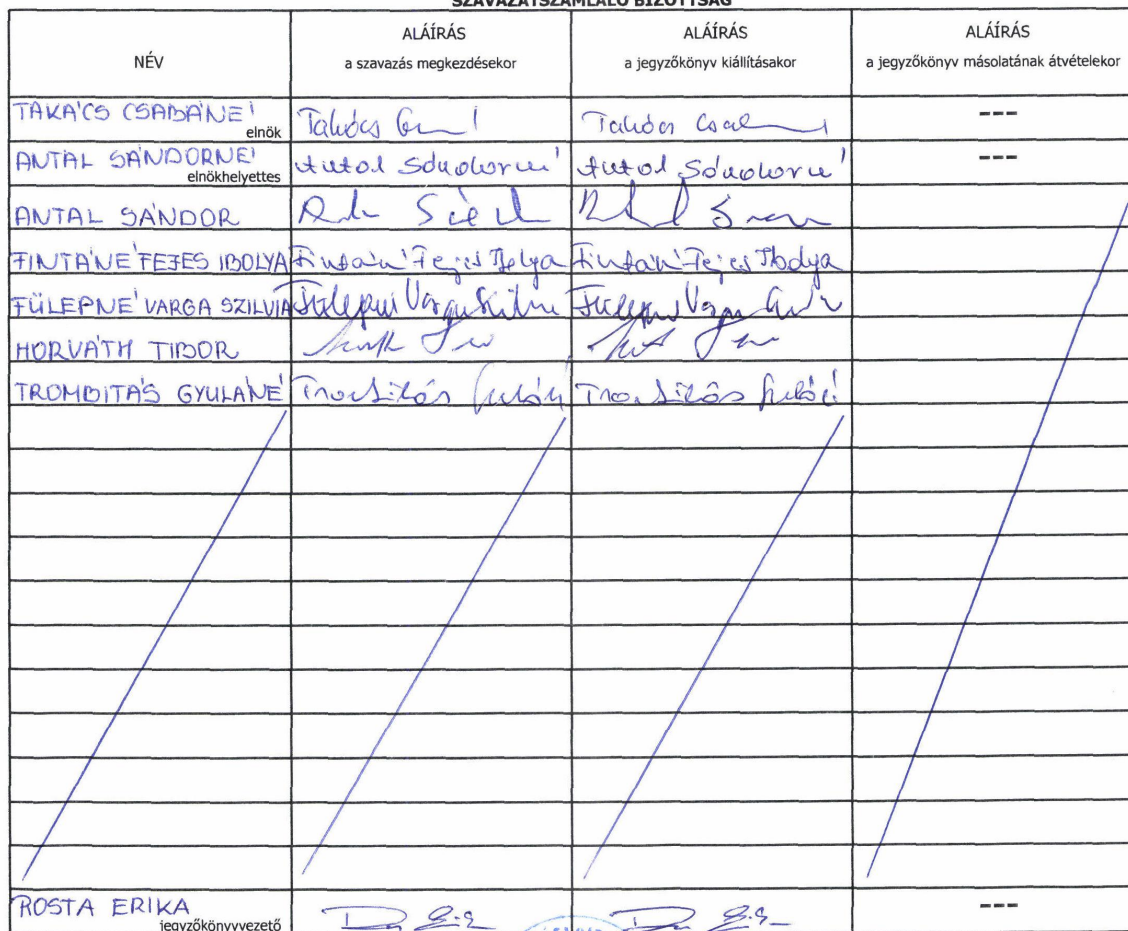 SZAVAZATSZÁMLÁLÓ BIZOTTSÁG
NÉV
ALÁÍRÁS
a szavazás megkezdésekor
ALÁÍRÁS
a jegyzőkönyv kiállításakor
ALÁÍRÁS
a jegyzőkönyv másolatának átvételekor
TAKÁCS CSABÁNÉ
elnök
Takács
Takács
---
ANTAL SÁNDORNÉ
elnökhelyettes
Antal Sándorné
Antal Sándorné
---
ANTAL SÁNDOR
FINTÁNÉ FEJES IBOLYA
Fintáné Fejes Ibolya
Fintáné Fejes Ibolya
FÜLEPNÉ VARGA SZILVIA
Fülepné Varga Szilvia
Fülepné Varga
HORVÁTH TIBOR
TROMBITÁS GYULÁNÉ
Trombitás Gyuláné
Trombitás Gyuláné
ROSTA ERIKA
jegyzőkönyvvezető
---